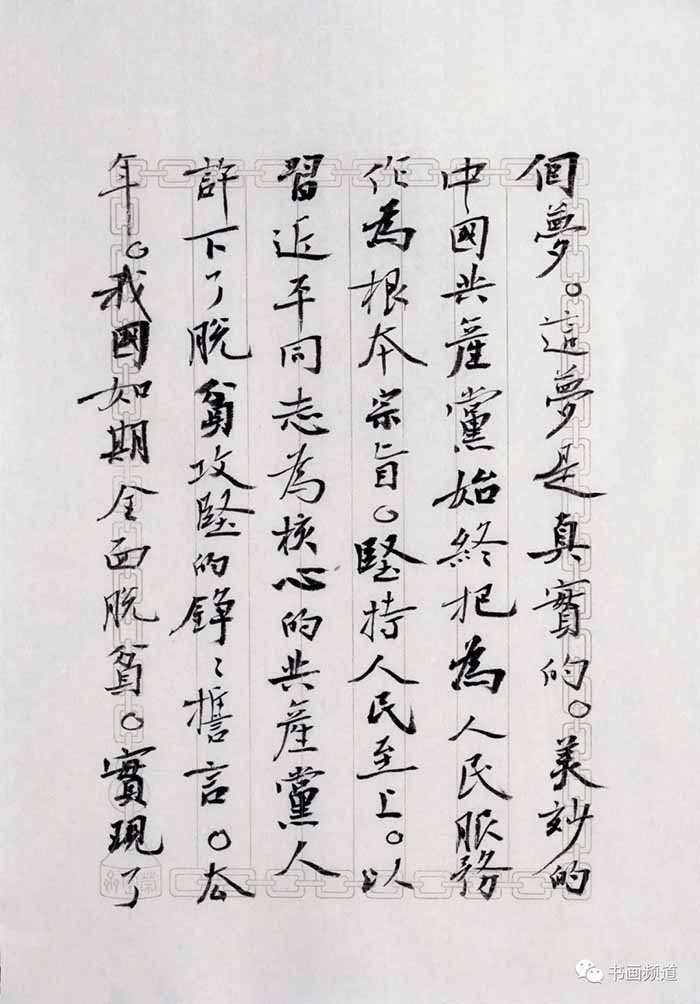 個夢。這夢是真實的。美妙的
中國共產黨始終把為人民服務
作為根本宗旨。堅持人民至上。以
習近平同志為核心的共產黨人
許下了脫貧攻堅的錚〻誓言。去
年。我國如期全面脫貧。實現了
书画频道